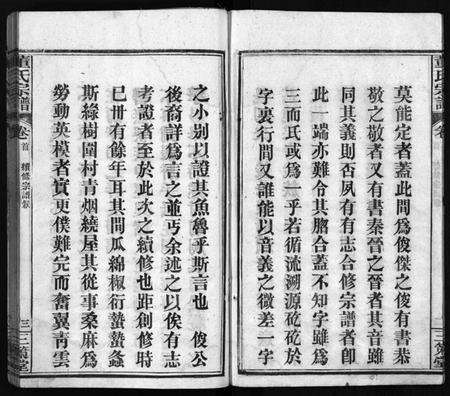 莫能定者蓋此間爲俊傑之俊有書恭
敬之敬者又有書秦晉之晉者其音雖
同其義則否夙有有志合修宗譜者卽
此一端亦難令其脗合蓋不知字雖爲
三而氏或爲一乎若循流溯源矻矻於
字裏行間又誰能以音義之微差一字
之小别以證其魚魯乎斯言也　俊公
後裔詳爲言之並丐余述之以俟有志
考證者至於此次之續修也距創修時
已卅有餘年耳其間瓜綿椒衍蟄蟄螽
斯綠樹圍村靑烟繞屋其從事桑麻爲
勞動英模者實更僕難完而奮翼靑雲
董氏宗譜
卷首　續修宗譜叙
三
三策堂
董氏宗譜
卷
三策堂